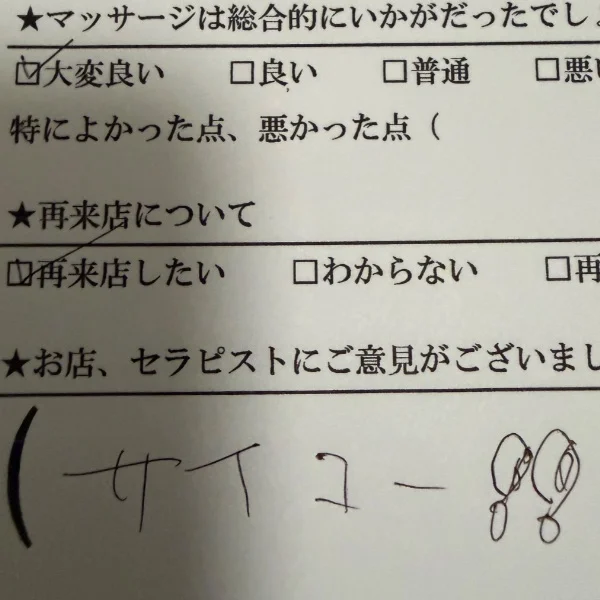 ★マッサージは総合的にいかがだったでしょ
☑大変良い □良い □普通 □悪い
特によかった点、悪かった点（
★再来店について
☑再来店したい □わからない □再
★お店、セラピストにご意見がございまし
（サイコー!!